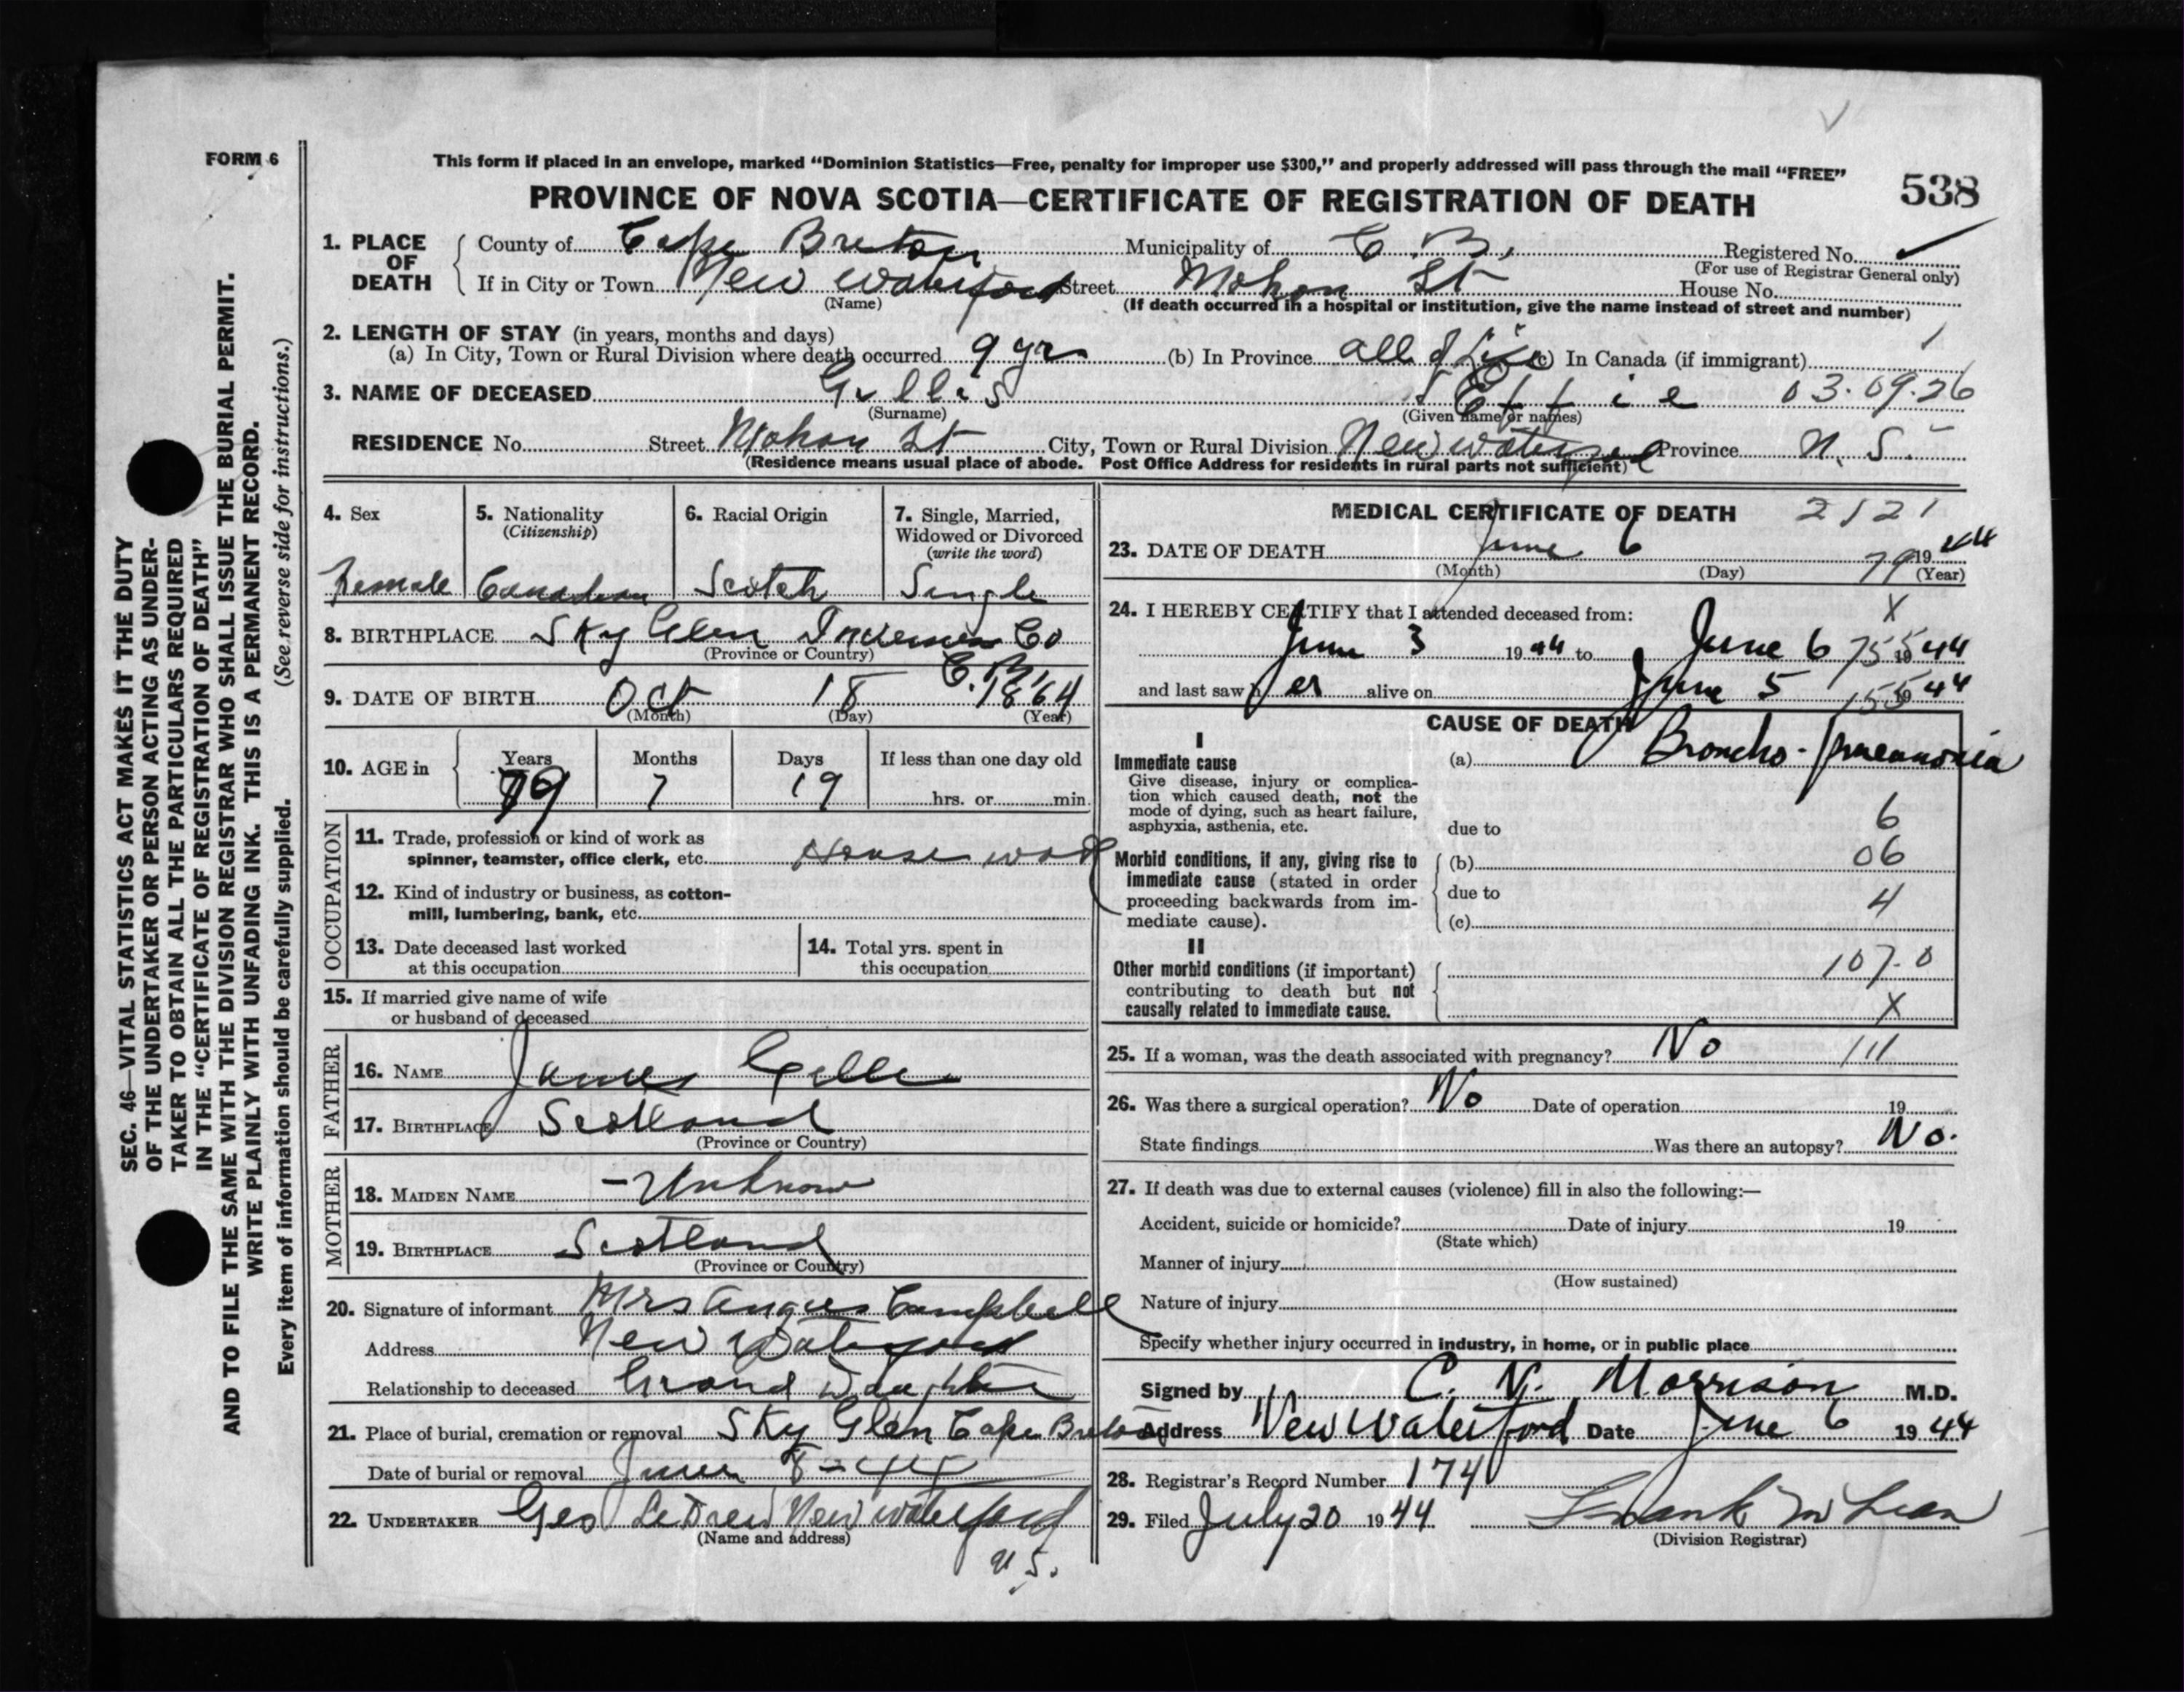 FORM 6
This form if placed in an envelope, marked “Dominion Statistics—Free, penalty for improper use $300,” and properly addressed will pass through the mail “FREE”
PROVINCE OF NOVA SCOTIA—CERTIFICATE OF REGISTRATION OF DEATH
538
SEC. 46—VITAL STATISTICS ACT MAKES IT THE DUTY
OF THE UNDERTAKER OR PERSON ACTING AS UNDER-
TAKER TO OBTAIN ALL THE PARTICULARS REQUIRED
IN THE “CERTIFICATE OF REGISTRATION OF DEATH”
AND TO FILE THE SAME WITH THE DIVISION REGISTRAR WHO SHALL ISSUE THE BURIAL PERMIT.
WRITE PLAINLY WITH UNFADING INK. THIS IS A PERMANENT RECORD.
Every item of information should be carefully supplied. (See reverse side for instructions.)
1. PLACE OF DEATH County of Cape Breton Municipality of C. B. Registered No.
(For use of Registrar General only)
If in City or Town New Waterford Street Mohon St House No.
(Name) (If death occurred in a hospital or institution, give the name instead of street and number)
2. LENGTH OF STAY (in years, months and days)
(a) In City, Town or Rural Division where death occurred 9 yrs (b) In Province all of Life (c) In Canada (if immigrant)
3. NAME OF DECEASED Gillis Effie 03.09.26
(Surname) (Given name or names)
RESIDENCE No. Street Mohon St City, Town or Rural Division New Waterford Province N. S.
(Residence means usual place of abode. Post Office Address for residents in rural parts not sufficient)
4. Sex 5. Nationality (Citizenship) 6. Racial Origin 7. Single, Married, Widowed or Divorced (write the word)
Female Canadian Scotch Single
8. BIRTHPLACE Sky Glen Inverness Co
(Province or Country) C.B.
9. DATE OF BIRTH Oct 18 1864
(Month) (Day) (Year)
10. AGE in Years Months Days If less than one day old
79 7 19 hrs. or min.
OCCUPATION
11. Trade, profession or kind of work as
spinner, teamster, office clerk, etc. House work
12. Kind of industry or business, as cotton-
mill, lumbering, bank, etc.
13. Date deceased last worked
at this occupation
14. Total yrs. spent in
this occupation
15. If married give name of wife
or husband of deceased
FATHER
16. NAME James Gillis
17. BIRTHPLACE Scotland
(Province or Country)
MOTHER
18. MAIDEN NAME -Unknow
19. BIRTHPLACE Scotland
(Province or Country)
20. Signature of informant Mrs Angus Campbell
Address New Waterford
Relationship to deceased Grand Daughter
21. Place of burial, cremation or removal Sky Glen Cape Breton
Date of burial or removal June 8-44
22. UNDERTAKER Geo LeDrew New Waterford
(Name and address)
N.S.
MEDICAL CERTIFICATE OF DEATH 2121
23. DATE OF DEATH June 6 79 1944
(Month) (Day) (Year)
24. I HEREBY CERTIFY that I attended deceased from: X
June 3 1944 to June 6 755 1944
and last saw her alive on June 5 155 1944
CAUSE OF DEATH
I
Immediate cause
Give disease, injury or complica-
tion which caused death, not the
mode of dying, such as heart failure,
asphyxia, asthenia, etc.
(a) Broncho-pneumonia
due to 6
Morbid conditions, if any, giving rise to
immediate cause (stated in order
proceeding backwards from im-
mediate cause).
(b) 06
due to 4
(c)
II
Other morbid conditions (if important)
contributing to death but not
causally related to immediate cause.
107-0
X
25. If a woman, was the death associated with pregnancy? No 111
26. Was there a surgical operation? No Date of operation 19
State findings Was there an autopsy? No.
27. If death was due to external causes (violence) fill in also the following:—
Accident, suicide or homicide? Date of injury 19
(State which)
Manner of injury
(How sustained)
Nature of injury
Specify whether injury occurred in industry, in home, or in public place
Signed by C. N. Morrison M.D.
Address New Waterford Date June 6 1944
28. Registrar's Record Number 174
29. Filed July 20 1944 Frank McLean
(Division Registrar)